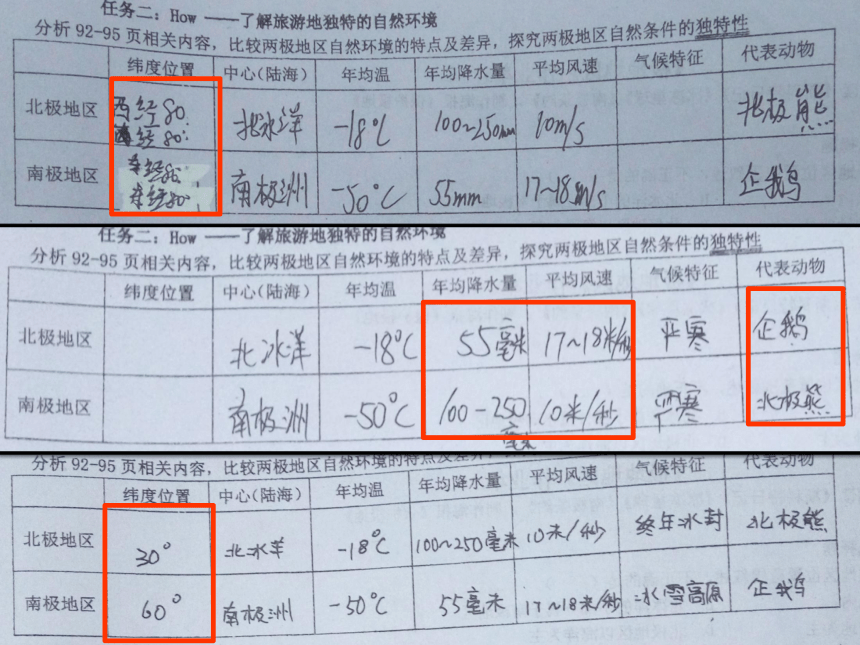 任务二：How ——了解旅游地独特的自然环境
分析92-95页相关内容，比较两极地区自然环境的特点及差异，探究两极地区自然条件的独特性
纬度位置 中心(陆海) 年均温 年均降水量 平均风速 气候特征 代表动物
北极地区 西经80° 北冰洋 -18℃ 100~250mm 10m/s 北极熊
西经80°
南极地区 东经80° 南极洲 -50℃ 55mm 17~18m/s 企鹅
东经80°
任务二：How ——了解旅游地独特的自然环境
分析92-95页相关内容，比较两极地区自然环境的特点及差异，探究两极地区自然条件的独特性
纬度位置 中心(陆海) 年均温 年均降水量 平均风速 气候特征 代表动物
北极地区 北冰洋 -18℃ 55毫米 17~18米/秒 严寒 企鹅
南极地区 南极洲 -50℃ 100-250毫米 10米/秒 严寒 北极熊
分析92-95页相关内容，比较两极地区自然环境的特点及差异，
纬度位置 中心(陆海) 年均温 年均降水量 平均风速 气候特征 代表动物
北极地区 30° 北冰羊 -18℃ 100~250毫米 10米/秒 终年冰封 北极熊
南极地区 60° 南极洲 -50℃ 55毫米 17~18米/秒 冰雪高原 企鹅